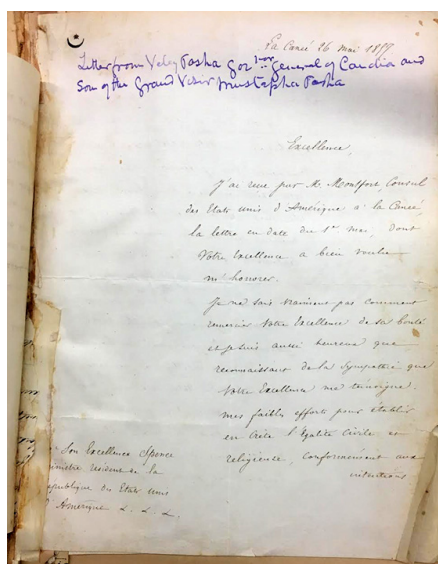 La Canée 26 mai 1857
Letter from Veley Pasha Gov.nor General of Candia and
Son of the Grand Visir Mustapha Pasha
Excellence,
J'ai reçu par M. Montfort, Consul
des Etats unis d'Amérique à la Canée
la lettre en date du 1er mai, dont
Votre Excellence a bien voulu
m'honorer.
Je ne sais vraiment pas comment
remercier Votre Excellence de sa bonté
et je suis aussi heureux que
reconnaissant de la Sympathie que
Votre Excellence me témoigne.
mes faibles efforts pour établir
en Crète l'égalité Civile et
religieuse, conformément aux
intentions
Son Excellence Spence
inistre résident de la
épublique des Etats unis
d'Amérique &. &. &.